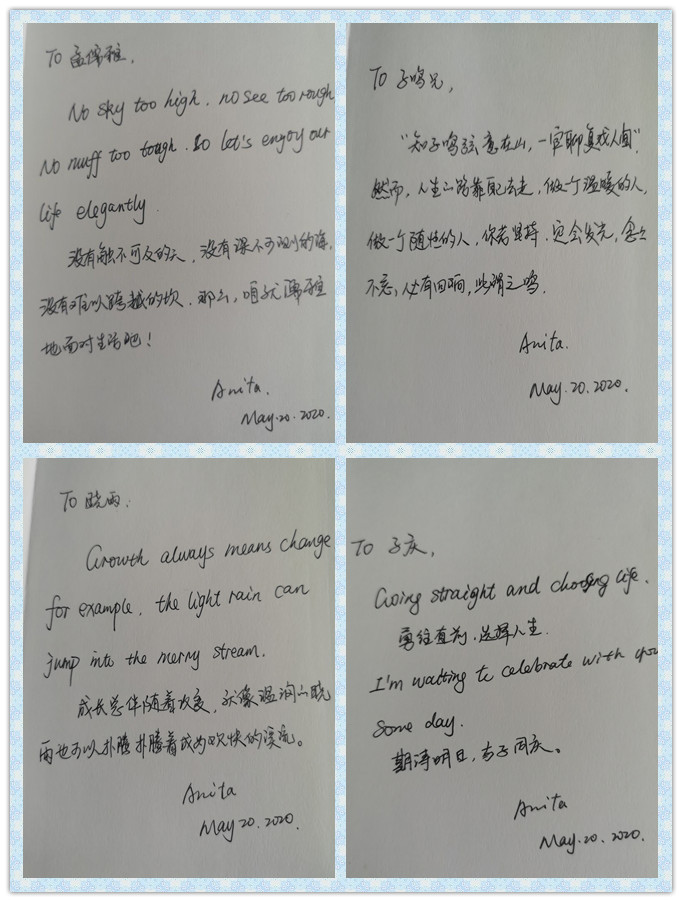 To 孟儒雅,
No sky too high. no see too rough
No muff too tough. So let's enjoy our
life elegantly.
没有触不可及的天, 没有深不可测的海,
没有难以跨越的坎. 那么, 咱就儒雅
地面对生活吧!
Anita.
May.20.2020.
To 子鸣兄,
"知子鸣弦意在山, 一官聊复戏人间".
然而, 人生之路靠自己去走, 做一个温暖的人,
做一个随性的人, 你若坚持, 定会发光, 念念
不忘, 必有回响, 此谓之鸣.
Anita.
May.20.2020.
To 晓雨:
Growth always means change
for example, the light rain can
jump into the merry stream.
成长总伴随着改变, 就像温润之晓
雨也可以扑腾扑腾着成为欢快的溪流。
Anita
May 20.2020.
To 子庆,
Going straight and choosing life.
勇往直前, 选择人生.
I'm waiting to celebrate with you
some day.
期待明日, 与子同庆。
Anita
May.20.2020.